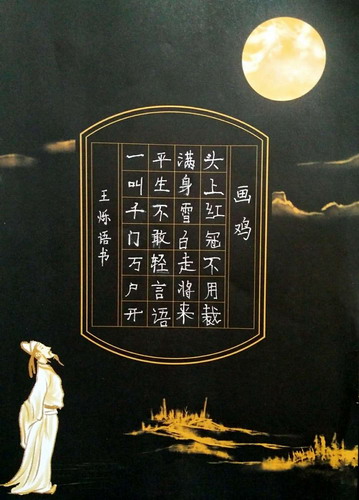 画鸡
头上红冠不用裁
满身雪白走将来
平生不敢轻言语
一叫千门万户开
王烁语书